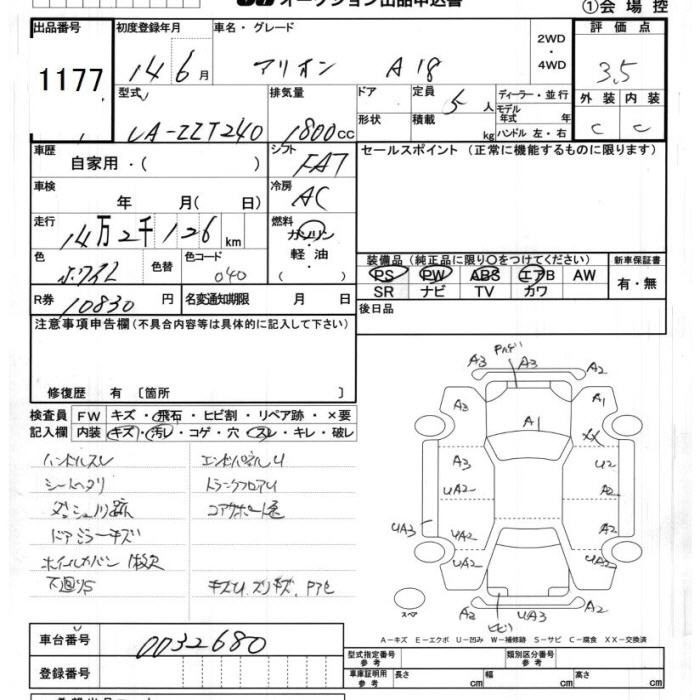 オークション出品申込書 ①会場控
出品番号 初度登録年月 車名・グレード 2WD・4WD 評価点
1177 14年6月 アリオン A18 3.5
型式 排気量 ドア 定員 5人 ディーラー・並行 外装 内装
UA-ZZT240 1800cc 形状 積載 kg モデル年式 年 ハンドル 左・右 C C
車歴 自家用・( ) シフト FAT セールスポイント(正常に機能するものに限ります)
車検 年 月( 日) 冷房 AC
走行 14万2千126km 燃料 ガソリン・軽油 ( )
色 ホワイト 色替 色コード 040 装備品(純正品に限り○をつけてください) 新車保証書
PS PW ABS エアB AW 有・無
SR ナビ TV カワ
R券 10830円 名変通知期限 月 日 後日品
注意事項申告欄(不具合内容等は具体的に記入して下さい)
修復歴 有〔箇所 〕
検査員記入欄 FW キズ・飛石・ヒビ割・リペア跡・×要
内装 キズ・汚レ・コゲ・穴・スレ・キレ・破レ
ハンドルスレ エンドパネルU
シートヘタリ トランクフロアU
ダッシュ川跡 コアサポート
ドアミラーキズ
ホイールカバー 1枚欠
下廻りS キズU スリキズ
A3 A3 A2
A3 A1 A1
XX
A3 U2
UA2 A2
UA3 UA2 A2
UA2 UA2
A2 UA3 A2
ヒビリ
スペア
A-キズ E-エクボ U-凹み W-補修跡 S-サビ C-腐食 XX-交換済
車台番号 0032680
型式指定番号 参考 類別区分番号 参考
登録番号 車庫証明用 参考 長さ cm 幅 cm 高さ cm